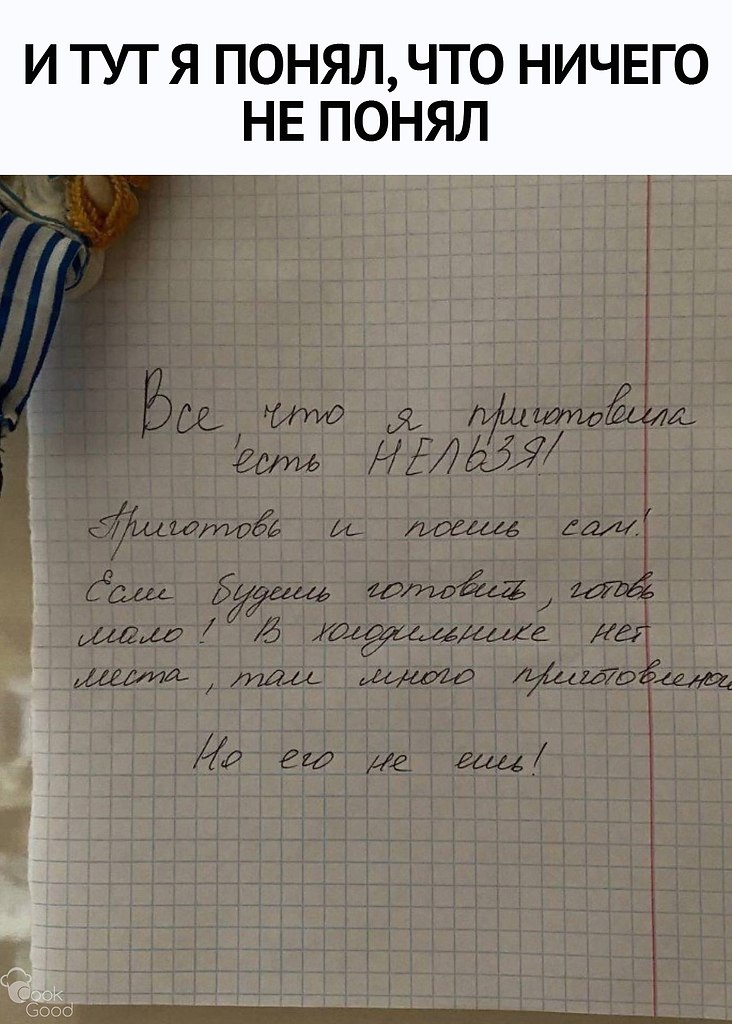 И ТУТ Я ПОНЯЛ, ЧТО НИЧЕГО
НЕ ПОНЯЛ
Все, что я приготовила
есть НЕЛЬЗЯ!
Приготовь и поешь сам!
Если будешь готовить, готовь
мало! В холодильнике нет
места, там много приготовленой
Но его не ешь!
Cook
Good